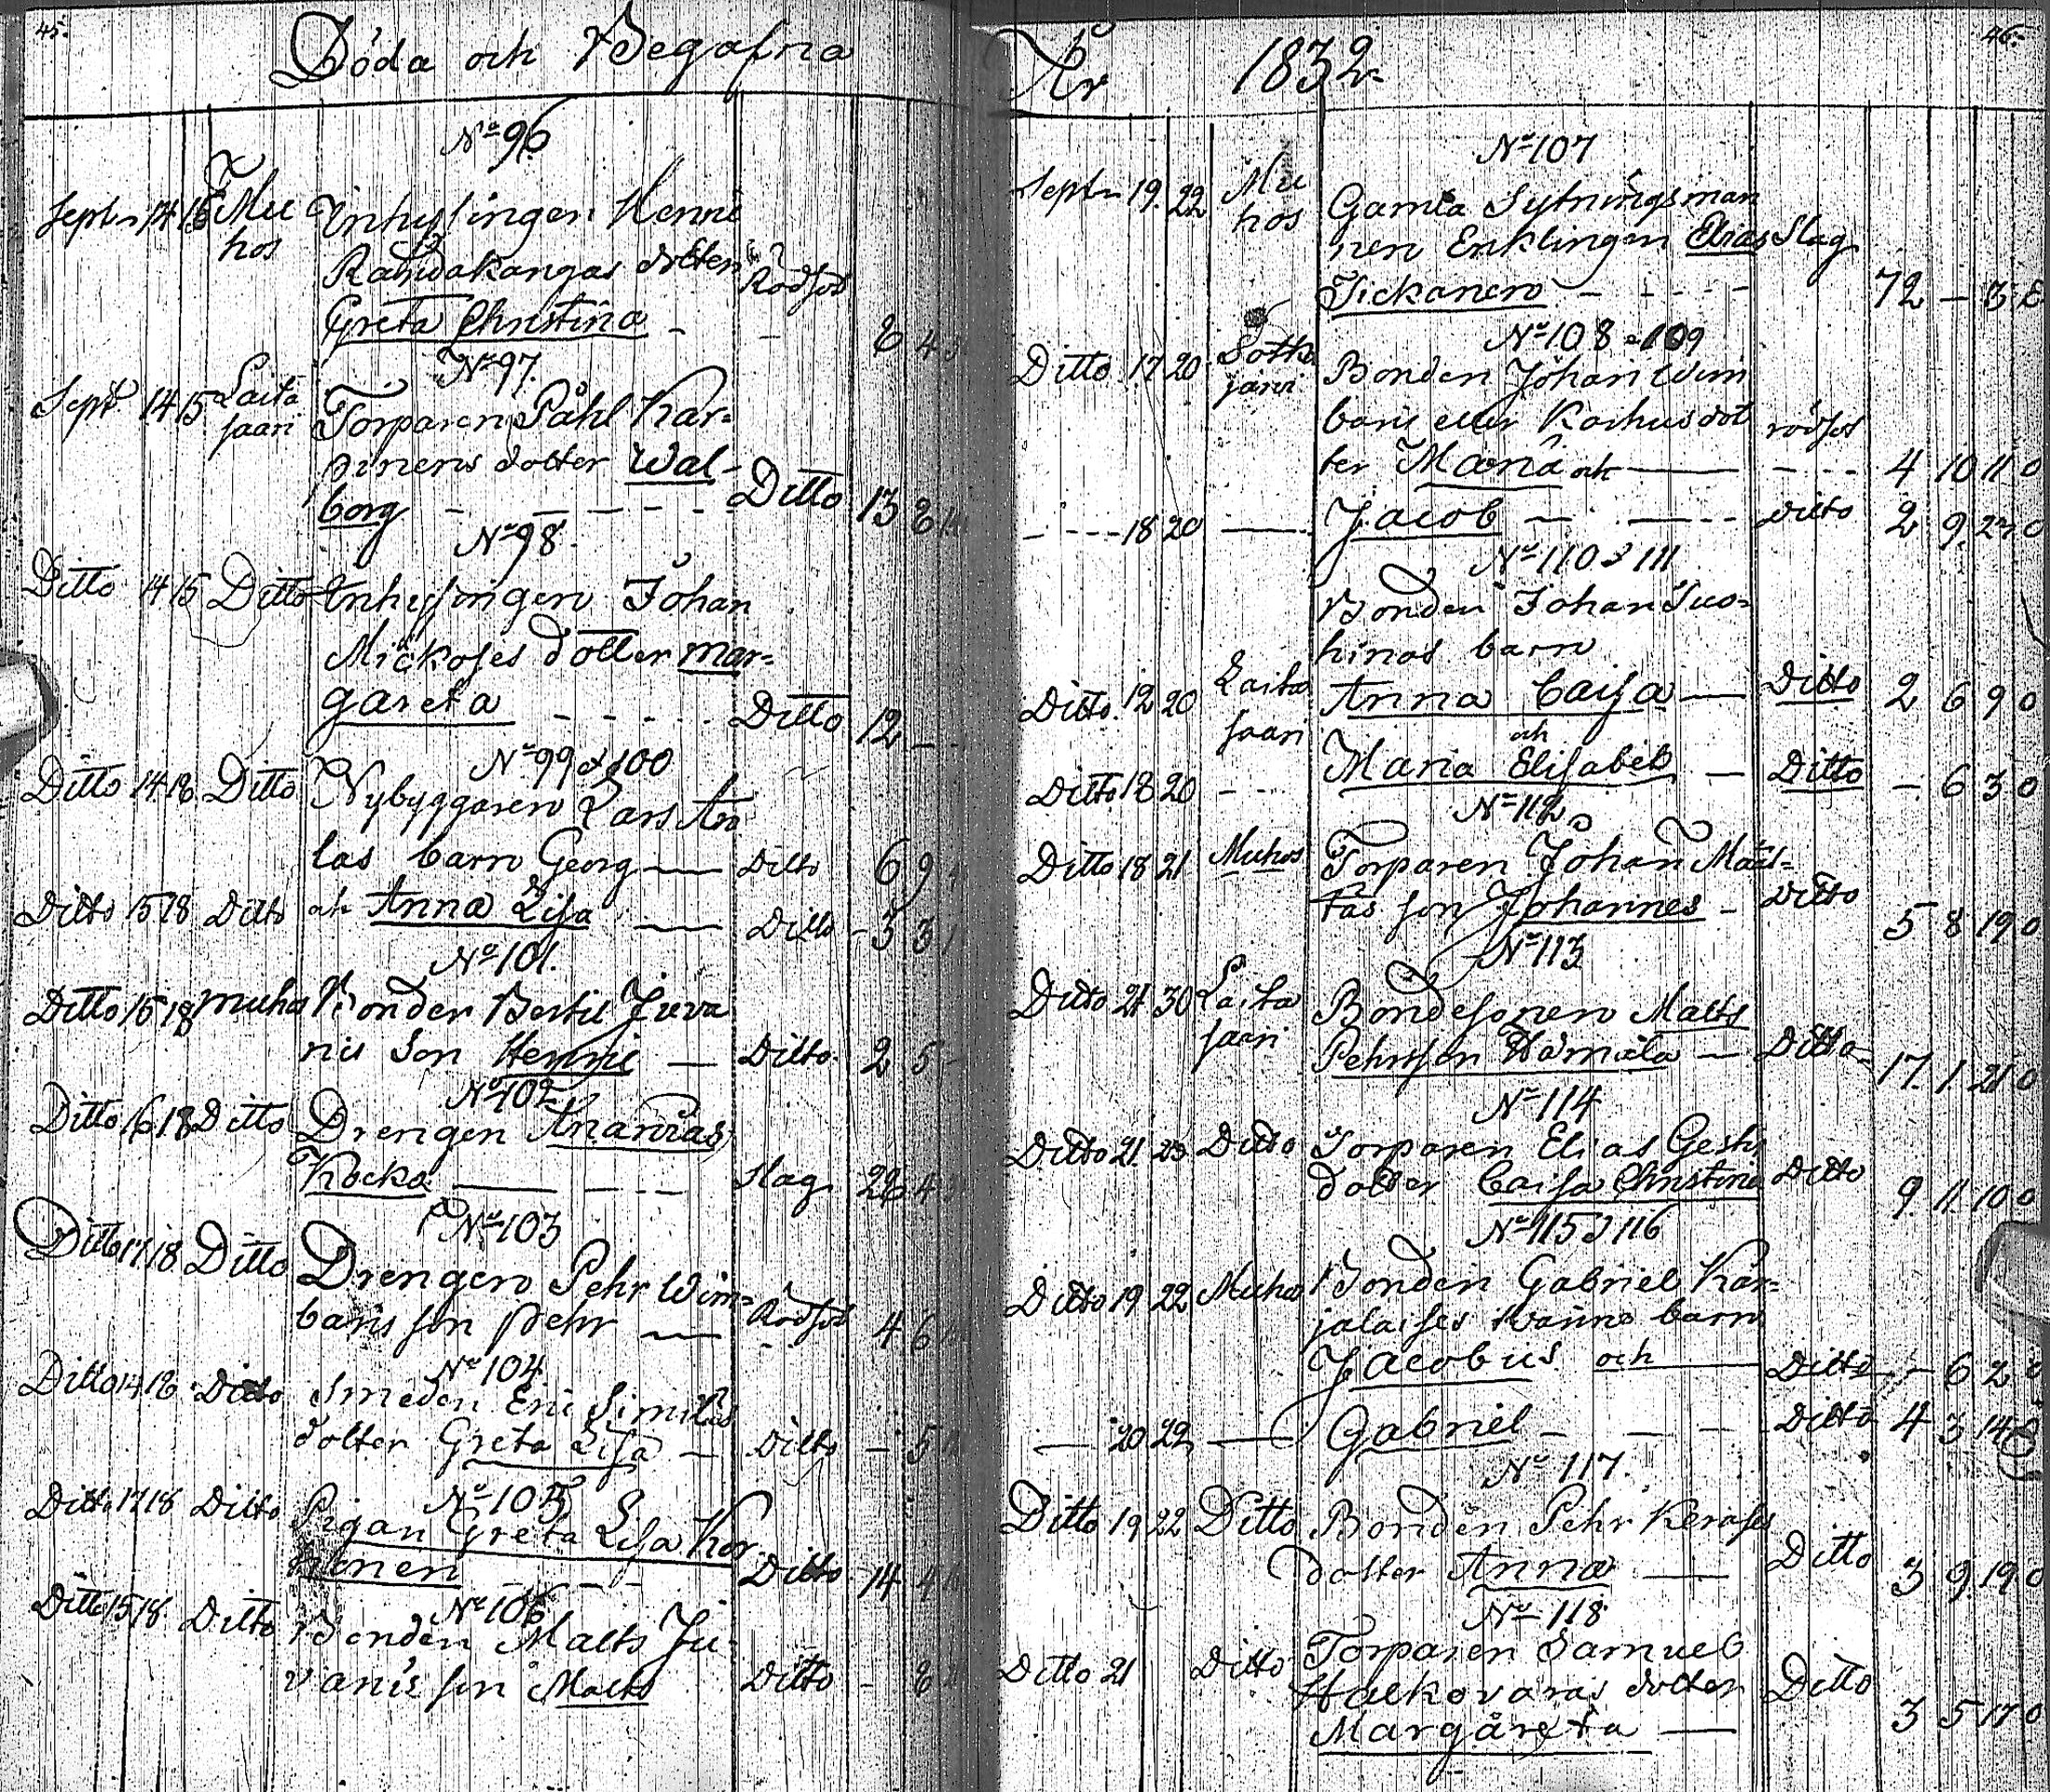 45.
Döda och Begrafna
No 96
Septbr 14 18 Mu Inhysingen Henric
hos Rahdakangas dotter Rödsot
Greta Christina - 8 4
No 97.
Sept 14 15 Laita Torparen Påhl Kar=
saari pinens dotter Wal- Ditto
borg - - - - - 13 8
No 98.
Ditto 14 15 Ditto Inhysingen Johan
Mickoses dotter Mar=
gareta - - - - - Ditto 12 -
No 99 & 100
Ditto 14 18 Ditto Nybyggaren Lars An
las barn Georg — Ditto 6 9
Ditto 15 18 Ditto och Anna Lisa — Ditto - 3 3
No 101.
Ditto 15 18 Muhos Bonden Bertil Juva
nis Son Henric — Ditto 2 5
No 102
Ditto 16 18 Ditto Drengen Ananias
Kocko — - - - Slag 26 4
No 103
Ditto 17 18 Ditto Drengen Pehr Wim=
baris son Pehr — Rödsot 4 6
No 104
Ditto 14 18 Ditto Smeden Eric Similas
dotter Greta Lisa — Ditto - 5
No 105
Ditto 17 18 Ditto Pigan Greta Lisa Kor
honen - - - Ditto 14 4
No 106
Ditto 15 18 Ditto Bonden Matts Ju=
vanis son Matts Ditto - 8
46.
År 1832.
No 107
Septbr 19. 22 Mu Gamla Sytningsman
hos nen Enklingen Elias Slag
Tickanen - - - - - 72 - 3 0
No 108 & 109
Ditto 17 20 Sotka Bonden Johan Wim
järvi baris eller Karhus dot rödsot
ter Maria och — - - - 4 10 11 0
- - - 18 20 — Jacob — — - - Ditto 2 9. 23 0
No 110 & 111
Bonden Johan Tuo=
hinos barn
Ditto. 12 20 Laita Anna Caisa — Ditto 2 6 9 0
saari och
Ditto 18 20 - - Maria Elisabet — Ditto - 6 3 0
No 112
Ditto 18 21 Muhos Torparen Johan Määt=
tas son Johannes - Ditto 5 8 19 0
No 113
Ditto 21 30 Laita Bondesonen Matts
saari Pehrsson Hämälä — Ditto 17. 1 21 0
No 114
Ditto 21. 23 Ditto Torparen Elias Gesti
dotter Caisa Christina Ditto 9 11. 10 0
No 115 & 116
Ditto 19 22 Muhos Bonden Gabriel Kar=
jalaises barn
Jacobus och — Ditto - 6 2 0
— 20 22 — Gabriel - - - Ditto 4 3 14
No 117.
Ditto 19 22 Ditto Bonden Pehr Keräses
dotter Anna — Ditto 3 9. 19 0
No 118
Ditto 21 Ditto Torparen Samuel
Halkovaras dotter Ditto
Margareta — 3 5 17 0